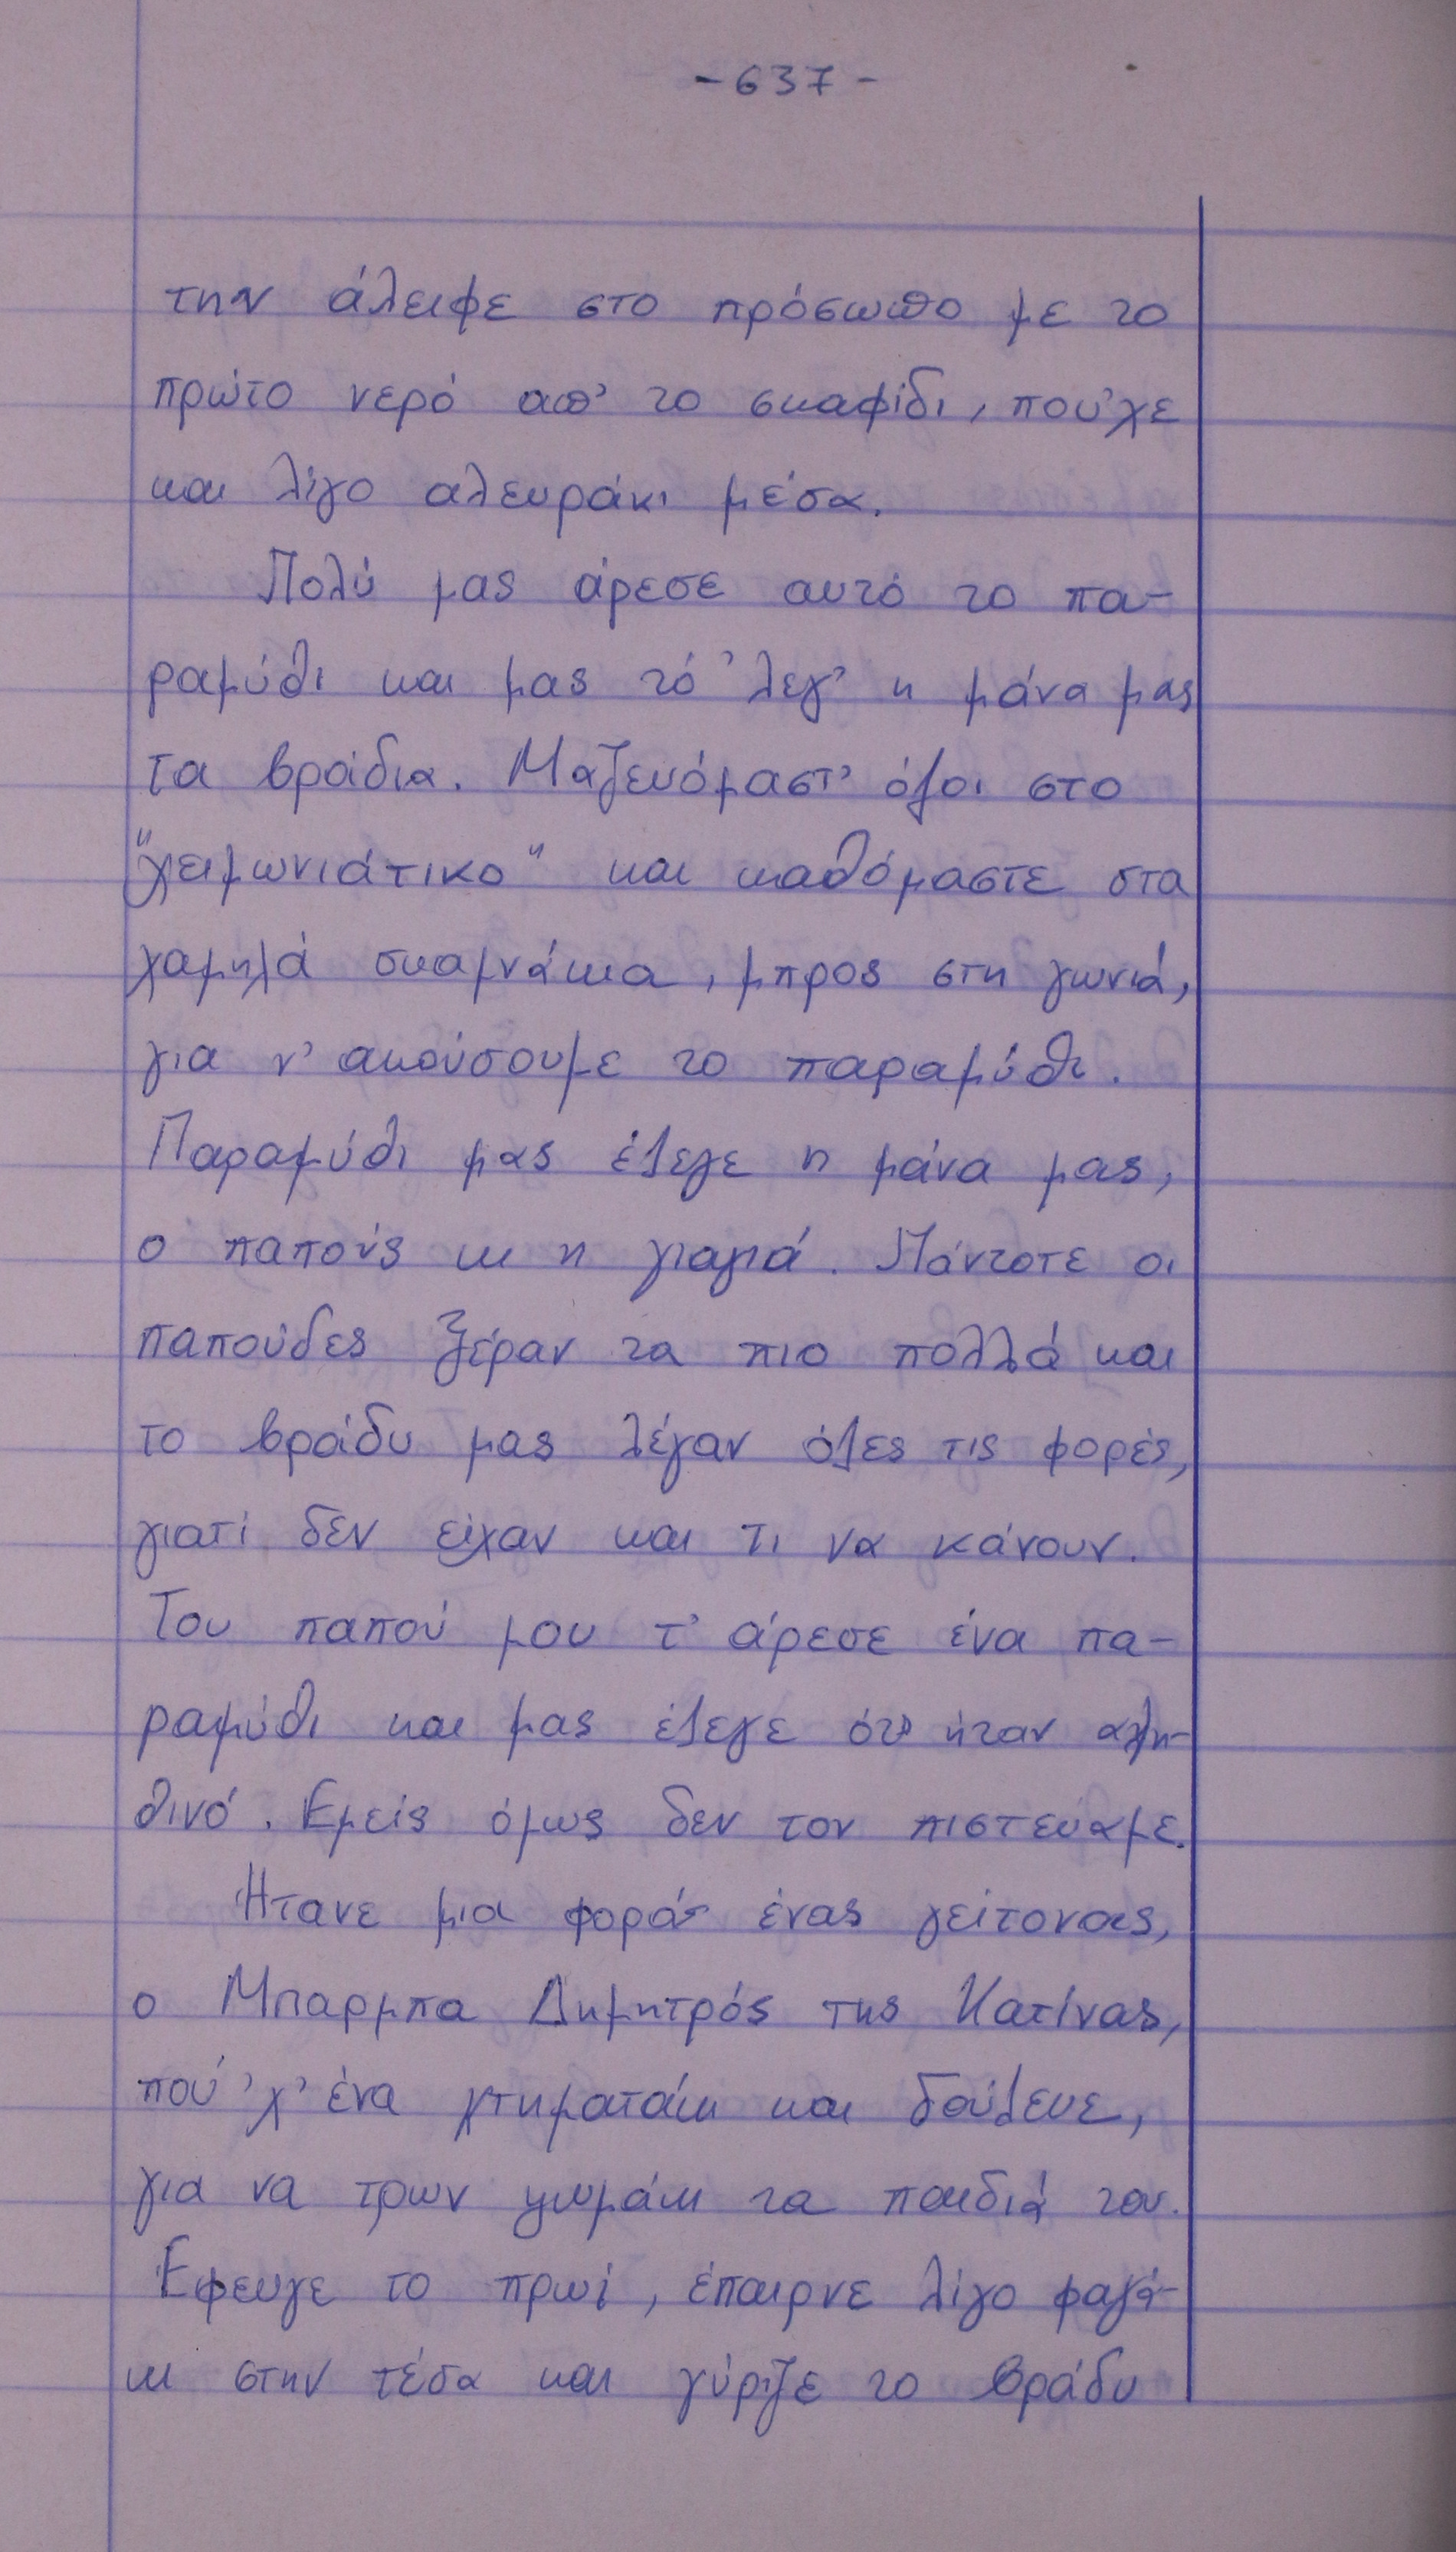 - 637 -
την άλειφε στο πρόσωπο με το
πρώτο νερό απ' το σκαφίδι, που'χε
και λίγο αλευράκι μέσα.
Πολύ μας άρεσε αυτό το πα-
ραμύθι και μας τό 'λεγ' η μάνα μας
τα βράδια. Μαζευόμαστ' όλοι στο
"χειμωνιάτικο" και καθόμαστε στα
χαμηλά σκαμνάκια, μπρος στη γωνιά,
για ν' ακούσουμε το παραμύθι.
Παραμύθι μας έλεγε η μάνα μας,
ο παπούς κι η γιαγιά. Πάντοτε οι
παπούδες ξέραν τα πιο πολλά και
το βράδυ μας λέγαν όλες τις φορές,
γιατί δεν είχαν και τι να κάνουν.
Του παπού μου τ' άρεσε ένα πα-
ραμύθι και μας έλεγε ότι ήταν αλη-
θινό. Εμείς όμως δεν τον πιστεύαμε.
Ήτανε μια φορά ένας γείτονας,
ο Μπαρμπα Δημητρός της Κατίνας,
πού 'χ' ένα χτηματάκι και δούλευε,
για να τρων ψωμάκι τα παιδιά του.
Έφευγε το πρωί, έπαιρνε λίγο φαγά-
κι στην τέσα και γύριζε το βράδυ